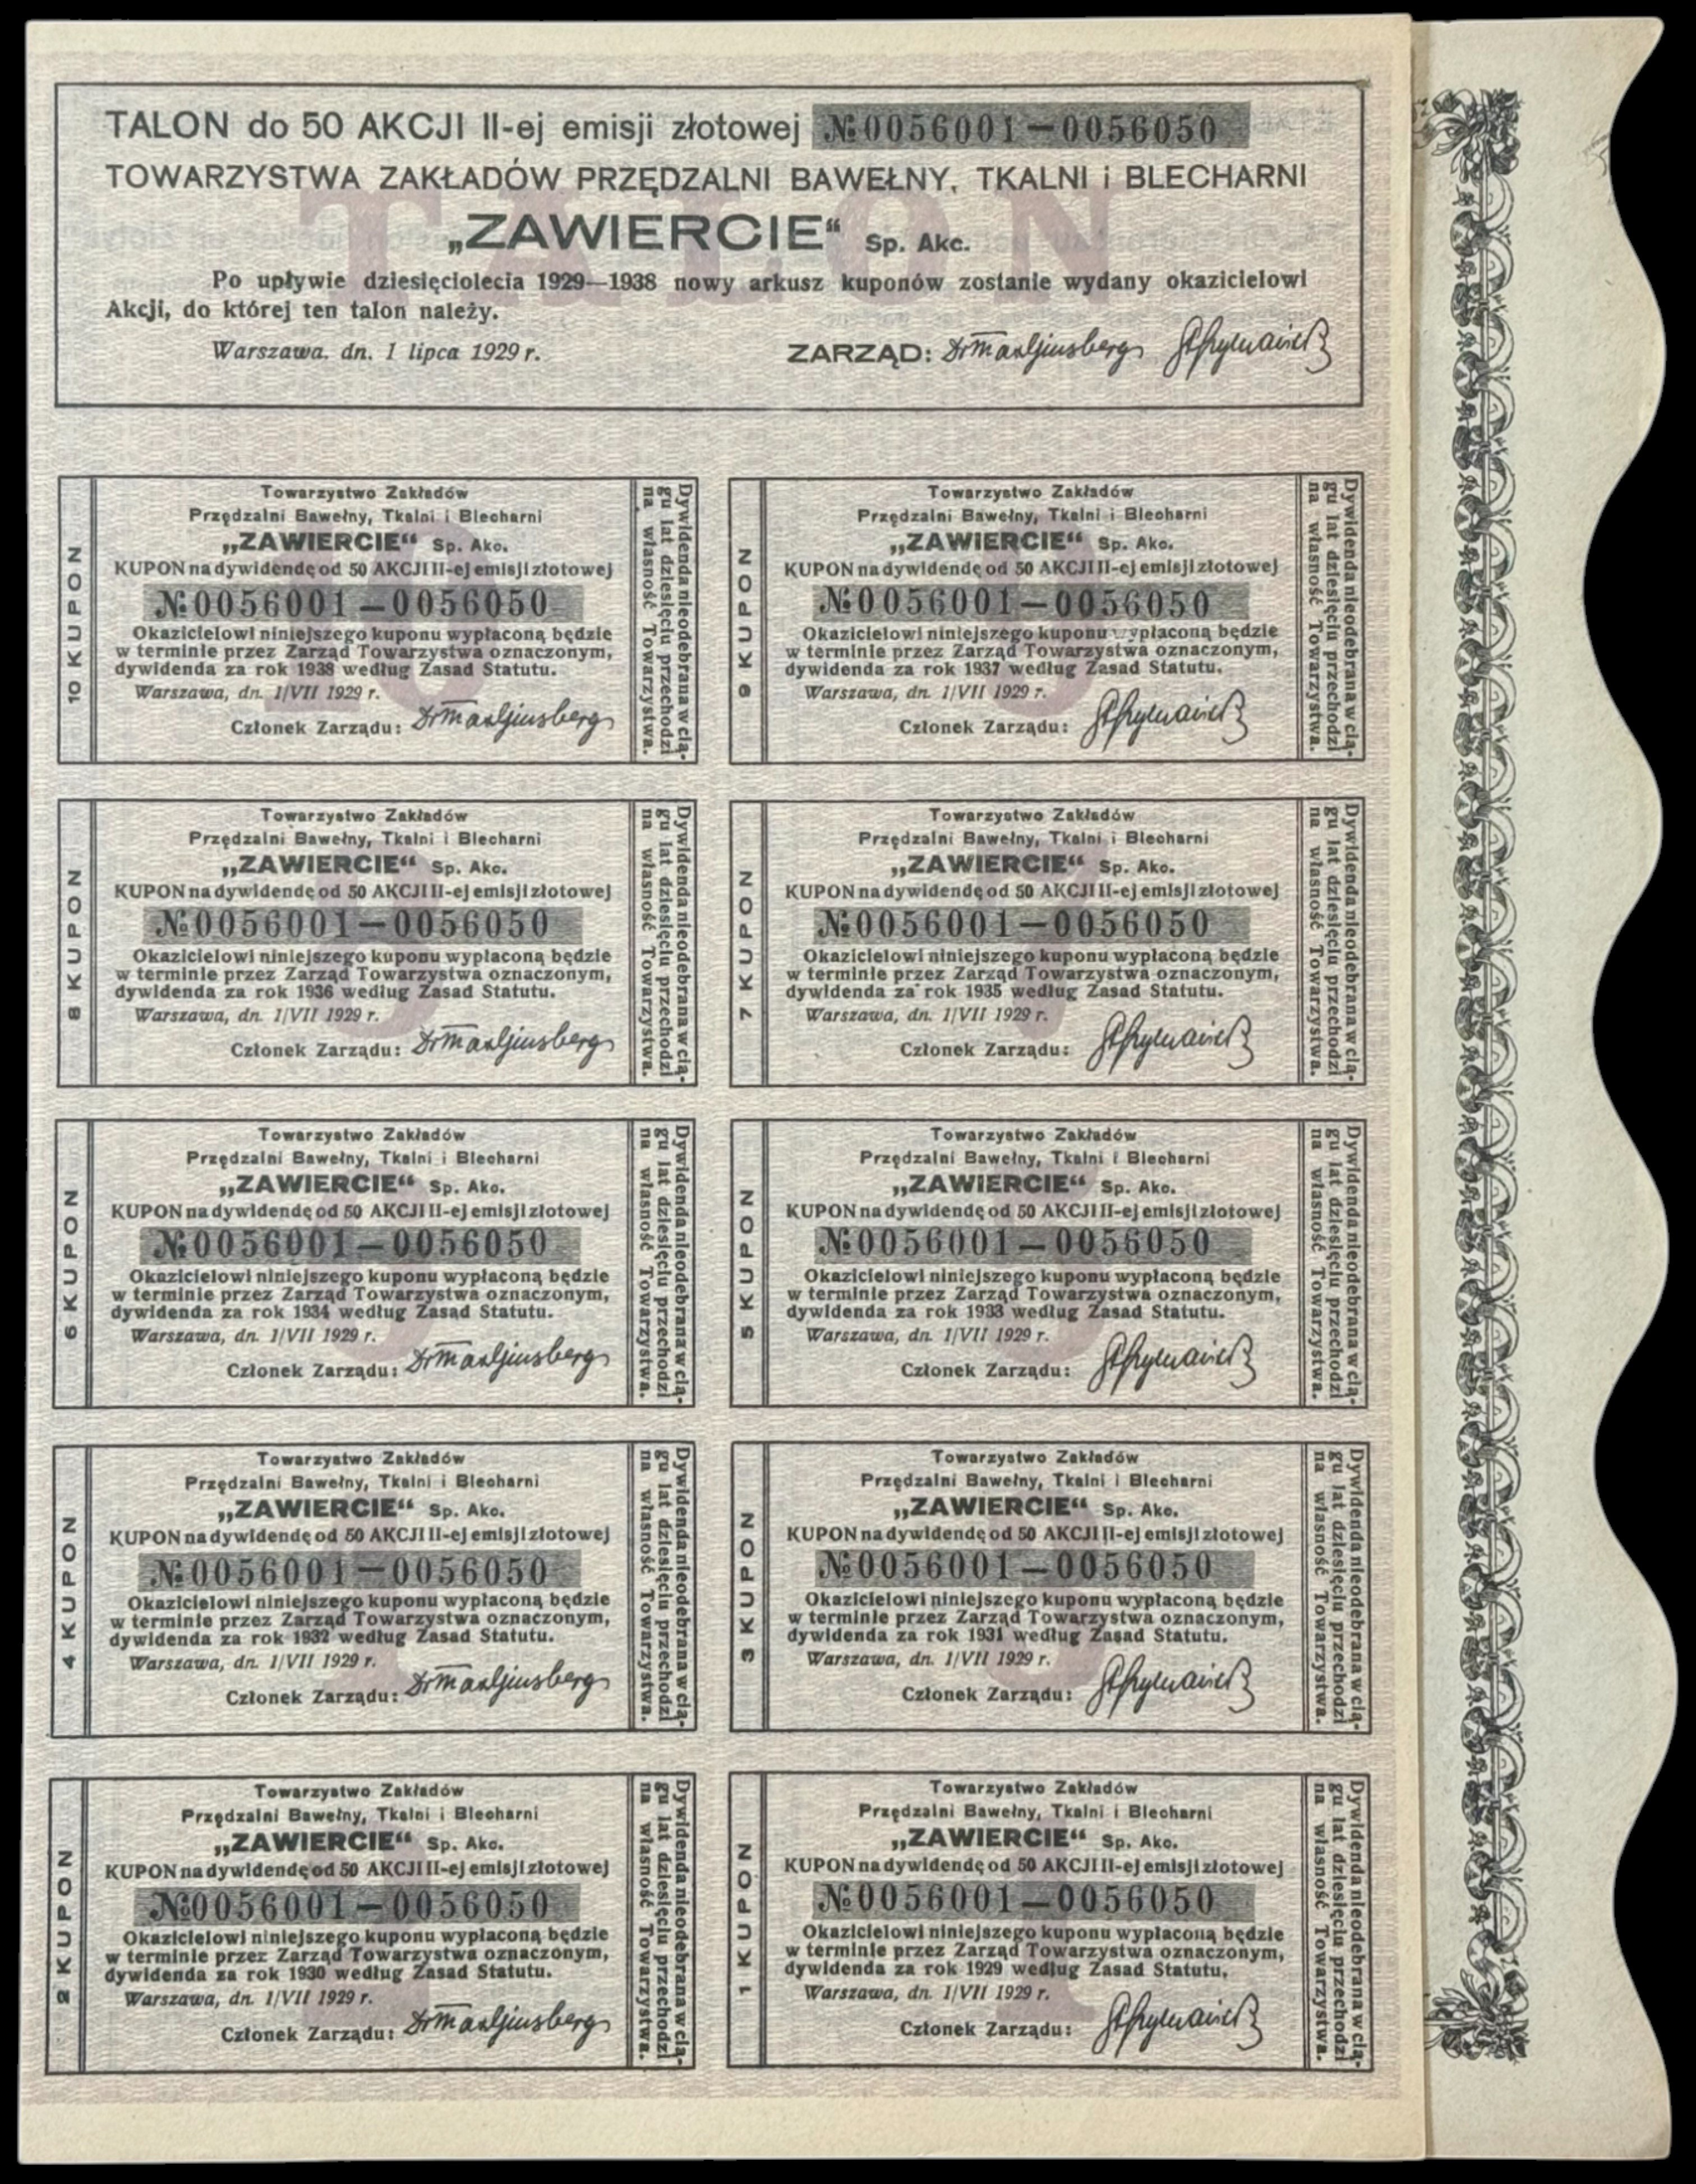 TALON do 50 AKCJI II-ej emisji złotowej № 0056001—0056050
TOWARZYSTWA ZAKŁADÓW PRZĘDZALNI BAWEŁNY, TKALNI i BLECHARNI
„ZAWIERCIE“ Sp. Akc.
Po upływie dziesięciolecia 1929—1938 nowy arkusz kuponów zostanie wydany okazicielowi
Akcji, do której ten talon należy.
Warszawa, dn. 1 lipca 1929 r.
ZARZĄD:
TALON
10 KUPON
Towarzystwo Zakładów
Przędzalni Bawełny, Tkalni i Blecharni
„ZAWIERCIE“ Sp. Akc.
KUPON na dywidendę od 50 AKCJI II-ej emisji złotowej
№ 0056001—0056050
Okazicielowi niniejszego kuponu wypłaconą będzie
w terminie przez Zarząd Towarzystwa oznaczonym,
dywidenda za rok 1938 według Zasad Statutu.
Warszawa, dn. 1/VII 1929 r.
Członek Zarządu:
Dywidenda nieodebrana w cią-
gu lat dziesięciu przechodzi
na własność Towarzystwa.
9 KUPON
Towarzystwo Zakładów
Przędzalni Bawełny, Tkalni i Blecharni
„ZAWIERCIE“ Sp. Akc.
KUPON na dywidendę od 50 AKCJI II-ej emisji złotowej
№ 0056001—0056050
Okazicielowi niniejszego kuponu wypłaconą będzie
w terminie przez Zarząd Towarzystwa oznaczonym,
dywidenda za rok 1937 według Zasad Statutu.
Warszawa, dn. 1/VII 1929 r.
Członek Zarządu:
Dywidenda nieodebrana w cią-
gu lat dziesięciu przechodzi
na własność Towarzystwa.
8 KUPON
Towarzystwo Zakładów
Przędzalni Bawełny, Tkalni i Blecharni
„ZAWIERCIE“ Sp. Akc.
KUPON na dywidendę od 50 AKCJI II-ej emisji złotowej
№ 0056001—0056050
Okazicielowi niniejszego kuponu wypłaconą będzie
w terminie przez Zarząd Towarzystwa oznaczonym,
dywidenda za rok 1936 według Zasad Statutu.
Warszawa, dn. 1/VII 1929 r.
Członek Zarządu:
Dywidenda nieodebrana w cią-
gu lat dziesięciu przechodzi
na własność Towarzystwa.
7 KUPON
Towarzystwo Zakładów
Przędzalni Bawełny, Tkalni i Blecharni
„ZAWIERCIE“ Sp. Akc.
KUPON na dywidendę od 50 AKCJI II-ej emisji złotowej
№ 0056001—0056050
Okazicielowi niniejszego kuponu wypłaconą będzie
w terminie przez Zarząd Towarzystwa oznaczonym,
dywidenda za rok 1935 według Zasad Statutu.
Warszawa, dn. 1/VII 1929 r.
Członek Zarządu:
Dywidenda nieodebrana w cią-
gu lat dziesięciu przechodzi
na własność Towarzystwa.
6 KUPON
Towarzystwo Zakładów
Przędzalni Bawełny, Tkalni i Blecharni
„ZAWIERCIE“ Sp. Akc.
KUPON na dywidendę od 50 AKCJI II-ej emisji złotowej
№ 0056001—0056050
Okazicielowi niniejszego kuponu wypłaconą będzie
w terminie przez Zarząd Towarzystwa oznaczonym,
dywidenda za rok 1934 według Zasad Statutu.
Warszawa, dn. 1/VII 1929 r.
Członek Zarządu:
Dywidenda nieodebrana w cią-
gu lat dziesięciu przechodzi
na własność Towarzystwa.
5 KUPON
Towarzystwo Zakładów
Przędzalni Bawełny, Tkalni i Blecharni
„ZAWIERCIE“ Sp. Akc.
KUPON na dywidendę od 50 AKCJI II-ej emisji złotowej
№ 0056001—0056050
Okazicielowi niniejszego kuponu wypłaconą będzie
w terminie przez Zarząd Towarzystwa oznaczonym,
dywidenda za rok 1933 według Zasad Statutu.
Warszawa, dn. 1/VII 1929 r.
Członek Zarządu:
Dywidenda nieodebrana w cią-
gu lat dziesięciu przechodzi
na własność Towarzystwa.
4 KUPON
Towarzystwo Zakładów
Przędzalni Bawełny, Tkalni i Blecharni
„ZAWIERCIE“ Sp. Akc.
KUPON na dywidendę od 50 AKCJI II-ej emisji złotowej
№ 0056001—0056050
Okazicielowi niniejszego kuponu wypłaconą będzie
w terminie przez Zarząd Towarzystwa oznaczonym,
dywidenda za rok 1932 według Zasad Statutu.
Warszawa, dn. 1/VII 1929 r.
Członek Zarządu:
Dywidenda nieodebrana w cią-
gu lat dziesięciu przechodzi
na własność Towarzystwa.
3 KUPON
Towarzystwo Zakładów
Przędzalni Bawełny, Tkalni i Blecharni
„ZAWIERCIE“ Sp. Akc.
KUPON na dywidendę od 50 AKCJI II-ej emisji złotowej
№ 0056001—0056050
Okazicielowi niniejszego kuponu wypłaconą będzie
w terminie przez Zarząd Towarzystwa oznaczonym,
dywidenda za rok 1931 według Zasad Statutu.
Warszawa, dn. 1/VII 1929 r.
Członek Zarządu:
Dywidenda nieodebrana w cią-
gu lat dziesięciu przechodzi
na własność Towarzystwa.
2 KUPON
Towarzystwo Zakładów
Przędzalni Bawełny, Tkalni i Blecharni
„ZAWIERCIE“ Sp. Akc.
KUPON na dywidendę od 50 AKCJI II-ej emisji złotowej
№ 0056001—0056050
Okazicielowi niniejszego kuponu wypłaconą będzie
w terminie przez Zarząd Towarzystwa oznaczonym,
dywidenda za rok 1930 według Zasad Statutu.
Warszawa, dn. 1/VII 1929 r.
Członek Zarządu:
Dywidenda nieodebrana w cią-
gu lat dziesięciu przechodzi
na własność Towarzystwa.
1 KUPON
Towarzystwo Zakładów
Przędzalni Bawełny, Tkalni i Blecharni
„ZAWIERCIE“ Sp. Akc.
KUPON na dywidendę od 50 AKCJI II-ej emisji złotowej
№ 0056001—0056050
Okazicielowi niniejszego kuponu wypłaconą będzie
w terminie przez Zarząd Towarzystwa oznaczonym,
dywidenda za rok 1929 według Zasad Statutu,
Warszawa, dn. 1/VII 1929 r.
Członek Zarządu:
Dywidenda nieodebrana w cią-
gu lat dziesięciu przechodzi
na własność Towarzystwa.